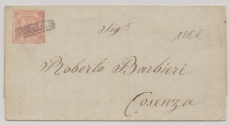 Sig.r
1862
Roberto Barbieri
Cosenza